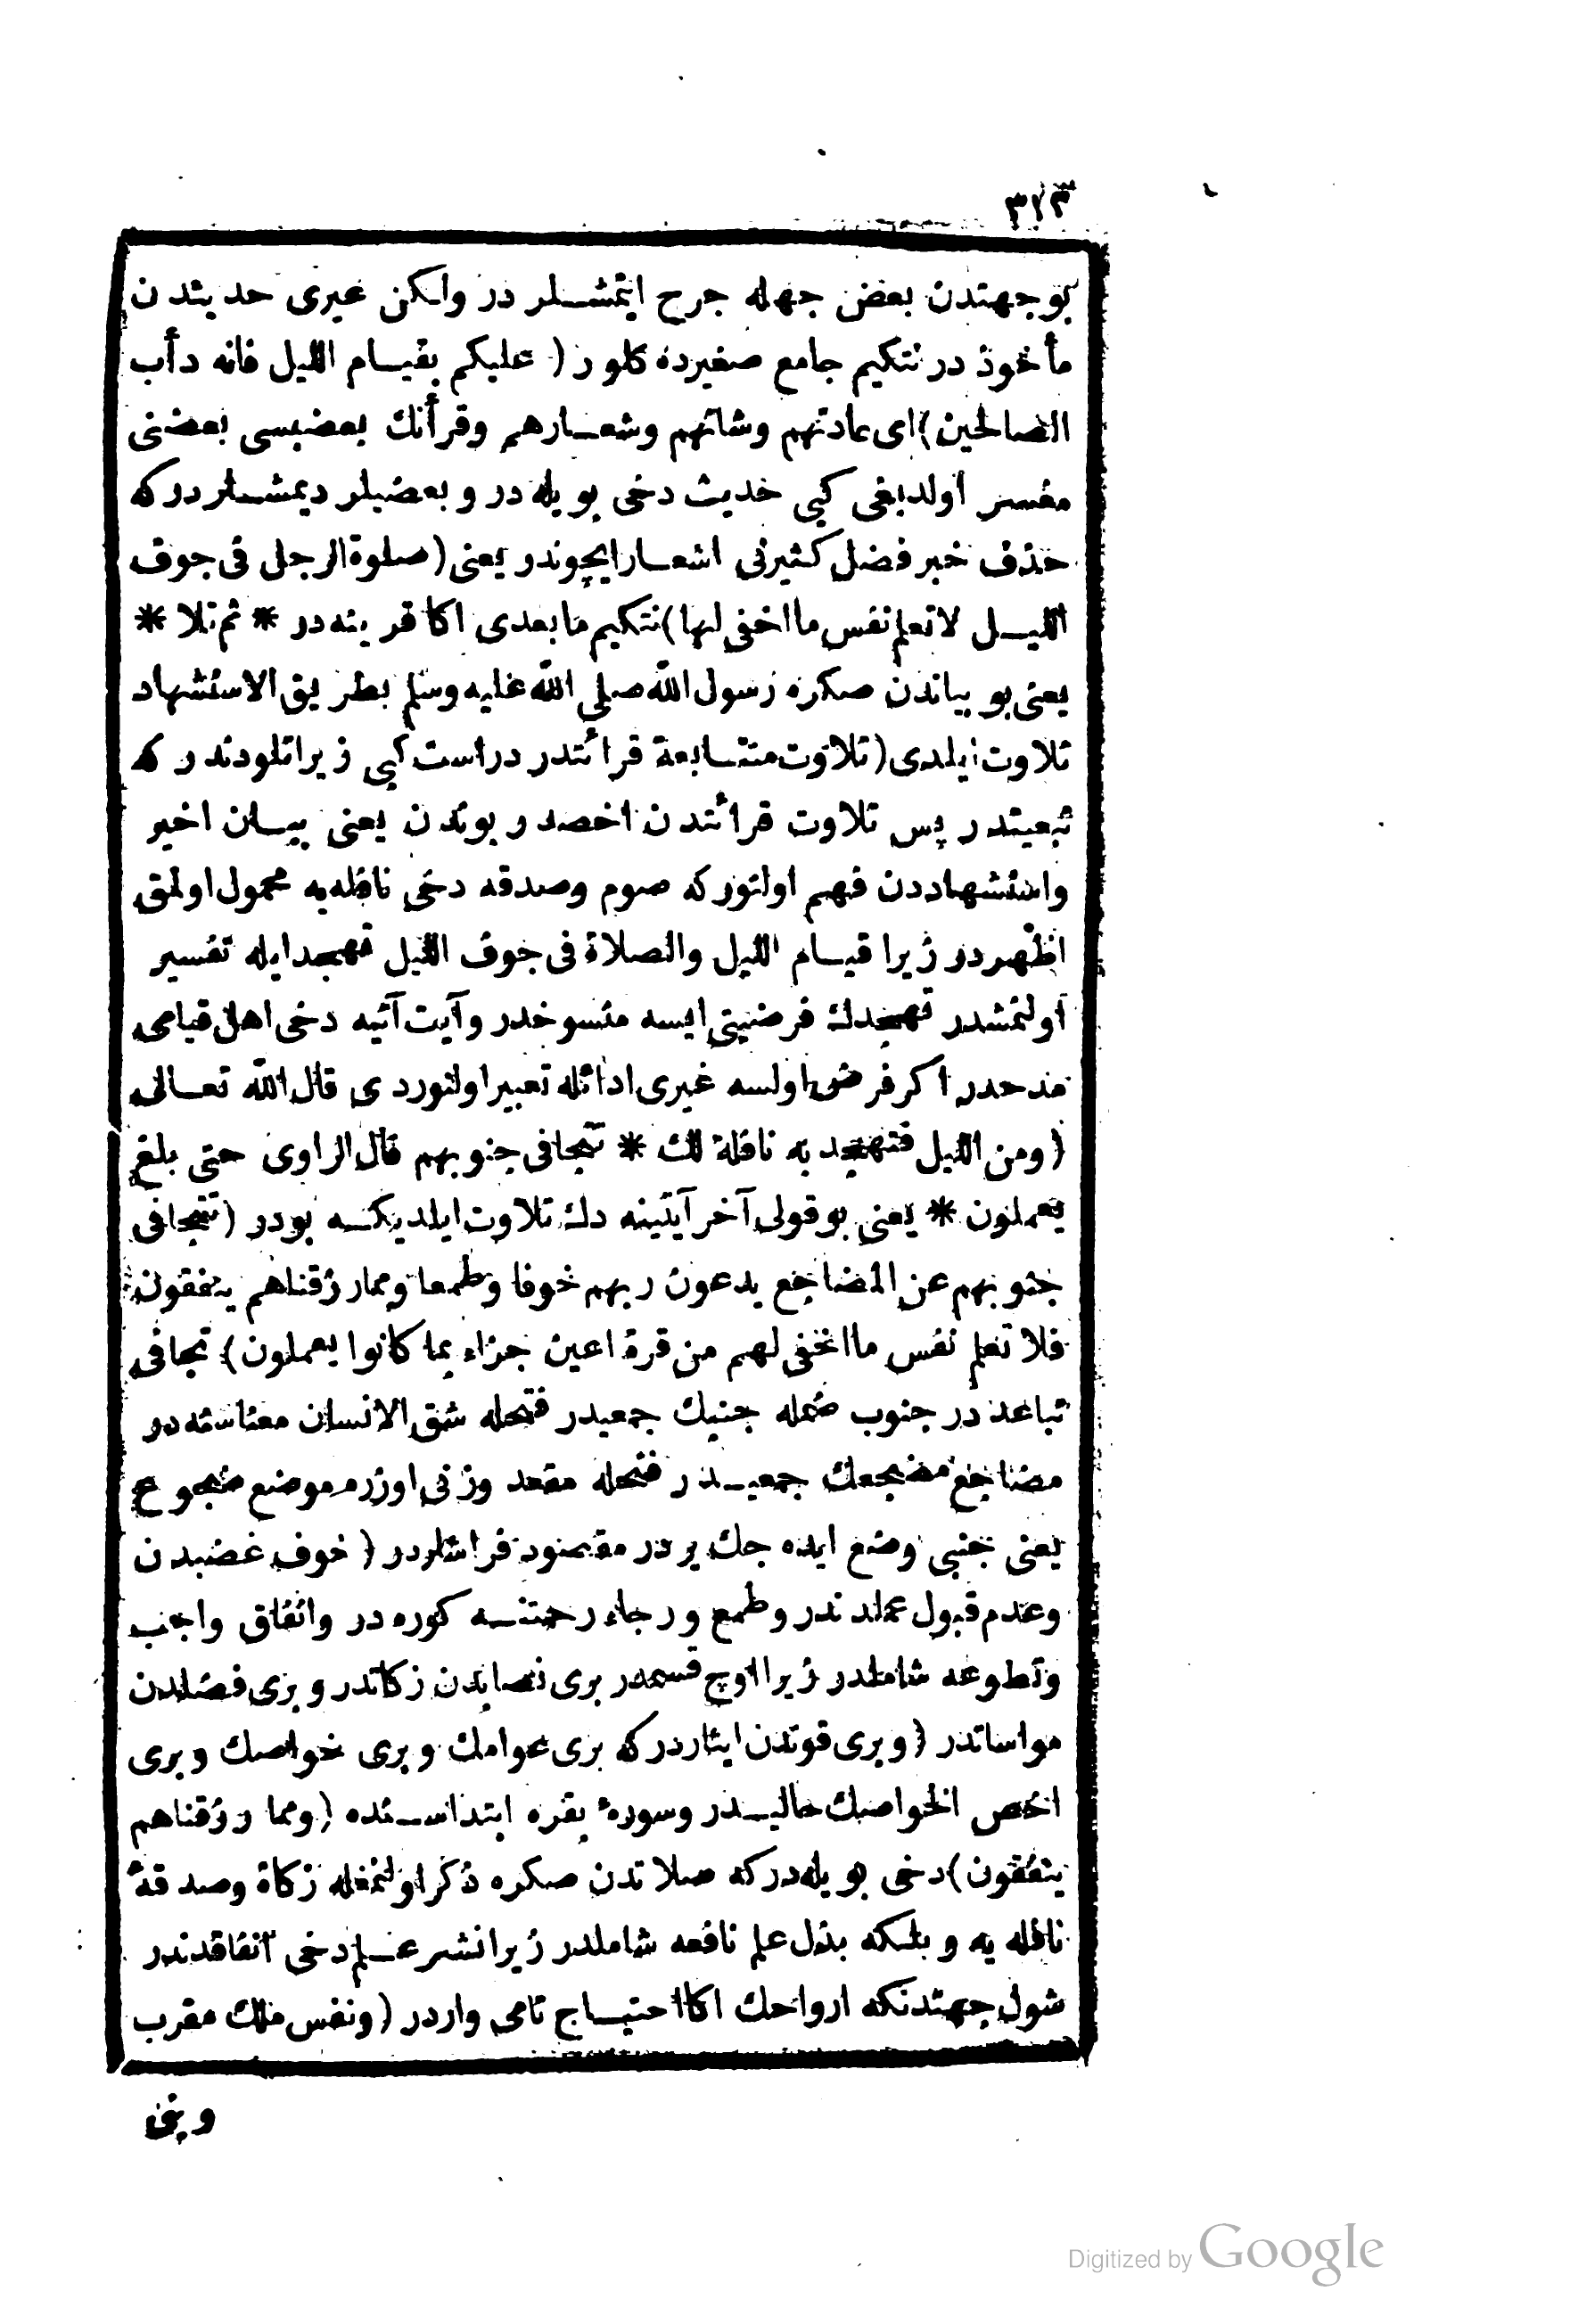 ٣١٣
بو جهتدن بعض جهله جرح ايتمشلر در ولكن غيرى حديثدن
مأخوذ در نتكيم جامع صغيرده كلور ( عليكم بقيام الليل فانه دأب
الصالحين ) اى عادتهم وشانهم وشعارهم وقرأنك بعضيسى بعضنى
مفسر اولديغى كبى حديث دخى بويله در و بعضيلر ديمشلر در كه
حذف خبر فضل كثيرنى اشعار ايچوندر يعنى ( صلوة الرجل فى جوف
الليل لا تعلم نفس ما اخفى لها ) نتكيم مابعدى اكا قرينه در * ثم تلا *
يعنى بو بياندن صكره رسول الله صلى الله عليه وسلم بطريق الاستشهاد
تلاوت ايلدى ( تلاوت متتابعة قرائتدر دراست كبى زيرا تلودندر كه
تبعيتدر پس تلاوت قرائتدن اخصدر بوندن يعنى بيان اخير
واستشهاددن فهم اولنور كه صوم وصدقه دخى نافله يه محمول اولمق
اظهردر زيرا قيام الليل والصلاة فى جوف الليل تهجد ايله تفسير
اولنمشدر تهجدك فرضيتى ايسه منسوخدر وآيت آتيه دخى اهل قيامى
مدحدر اكر فرض اولسه غيرى ادائله تعبير اولنوردى قال الله تعالى
( ومن الليل فتهجد به نافلة لك * تتجافى جنوبهم قال الراوى حتى بلغ
يعملون * يعنى بو قولى آخر آيتينه دك تلاوت ايلديكه بودر ( تتجافى
جنوبهم عن المضاجع يدعون ربهم خوفا وطمعا ومما رزقناهم ينفقون
فلا تعلم نفس ما اخفى لهم من قرة اعين جزاء بما كانوا يعملون ) تجافى
تباعد در جنوب ضمله جنبك جمعيدر فتحله شق الانسان معناسنه در
مضاجع مضجعك جمعيدر فتحله مقعد وزنى اوزره موضع ضجوع
يعنى جنبى وضع ايده جك يردر مقصود فراشلردر ( خوف غضبدن
وعدم قبول عملدندر وطمع ورجاء رحمتنه كوره در وانفاق واجب
وتطوعه شاملدر زيرا اوچ قسمدر برى نصابدن زكاتدر و برى فضلدن
مواساتدر ( و برى قوتدن ايثاردر كه برى عوامك و برى خواصك و برى
اخص الخواصك حاليدر وسورۀ بقره ابتداسنده ( ومما رزقناهم
ينفقون ) دخى بويله در كه صلاتدن صكره ذكر اولنمغله زكاة وصدقۀ
نافله يه و بلكه بذل علم نافعه شاملدر زيرا نشر علم دخى انفاقدندر
شول جهتدنكه ارواحك اكا احتياج تامى واردر ( ونفس ملك مقرب
ونبى
Digitized by Google